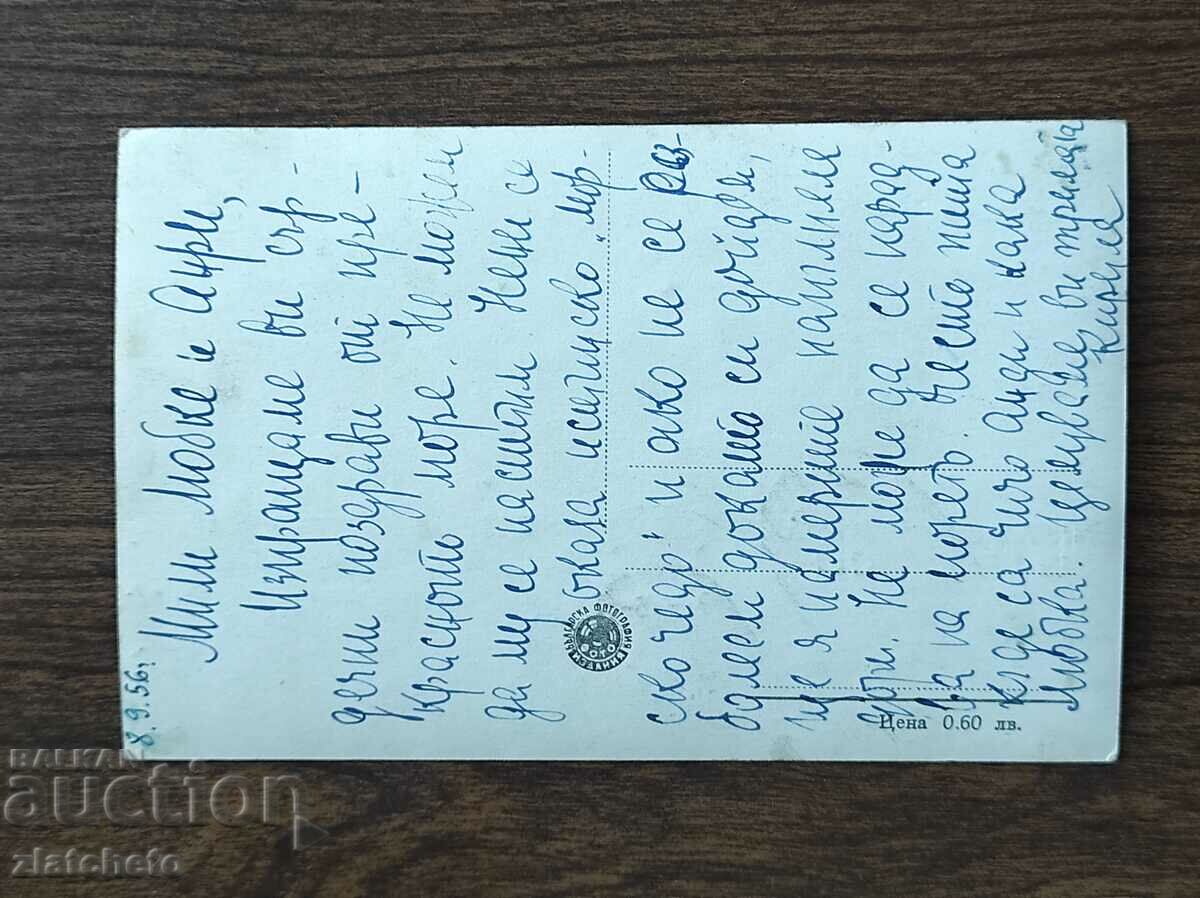 8.9.56г.
Мили Любке и Анри,
Изпращаме ви сър-
дечни поздрави от пре-
красното море. Не можем
да му се наситим. Нени се
оказа истинско „мор-
ско чедо" и ако не се раз-
болеем докато си дойдем,
ще я намерите напълня
добре. Не може да се нарад-
ва на морето. Често пита
къде са чичо Анди и кака
Любка. Целуваме ви тримата
Кирчеа
БЪЛГАРСКА ФОТОГРАФИЯ
ИЗДАНИЕ
ФОТО
Цена 0.60 лв.
BALKAN
auction
zlatcheto